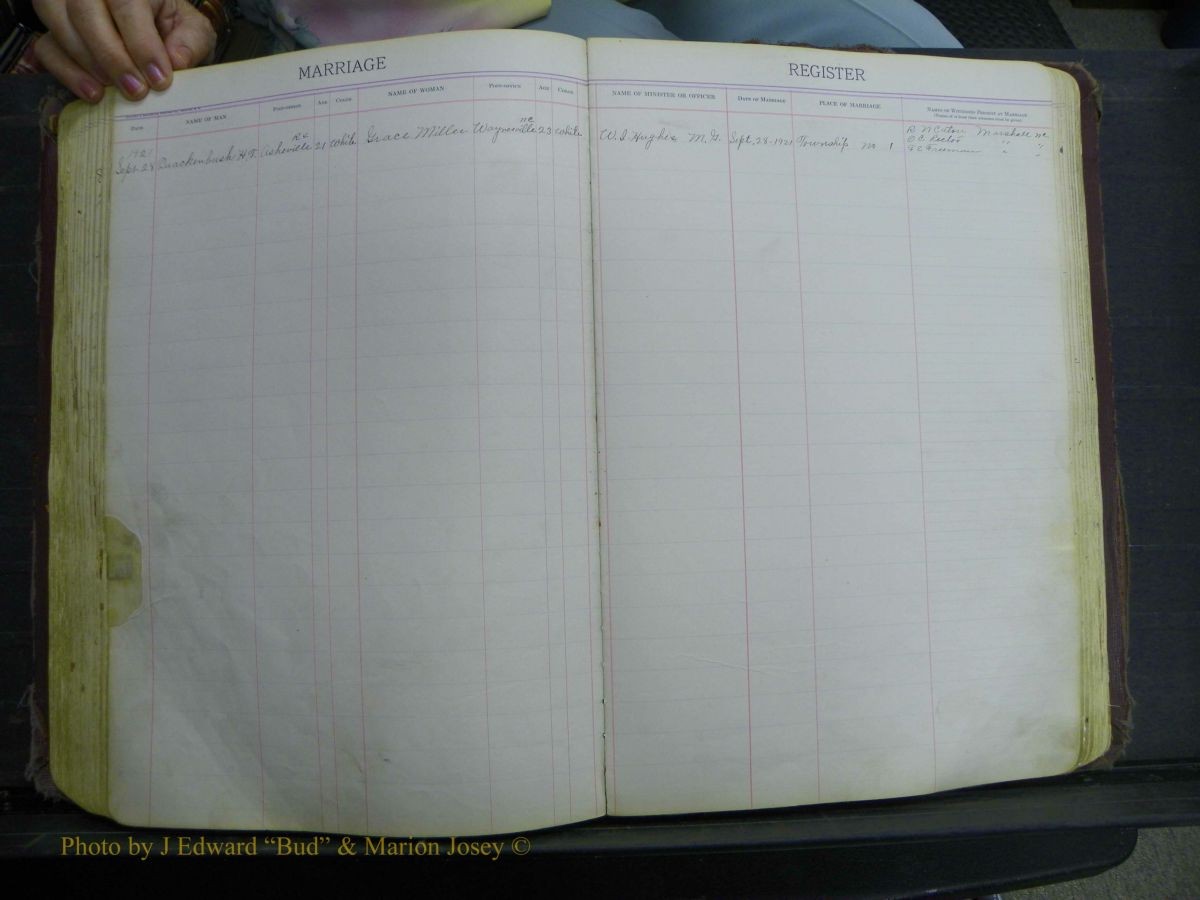 MARRIAGE
DATE NAME OF MAN POST-OFFICE AGE COLOR NAME OF WOMAN POST-OFFICE AGE COLOR
1921 NC
Sept. 28 Quackenbush H. T. Asheville 21 White Grace Miller Waynesville 23 White
REGISTER
NAME OF MINISTER OR OFFICER DATE OF MARRIAGE PLACE OF MARRIAGE NAMES OF WITNESSES PRESENT AT MARRIAGE
W. I. Hughes M. G. Sept. 28-1921 Township No 1 Marshall NC
O C Rector " "
Freeman " "
Photo by J Edward “Bud” & Marion Josey ©